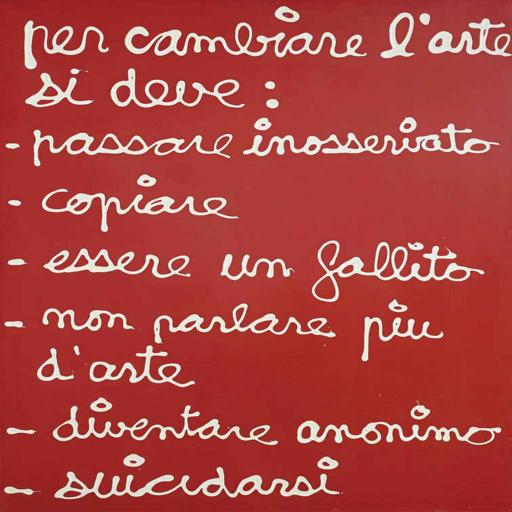 per cambiare l'arte
si deve :
- passare inosservato
- copiare
- essere un fallito
- non parlare piu
d'arte
- diventare anonimo
- suicidarsi